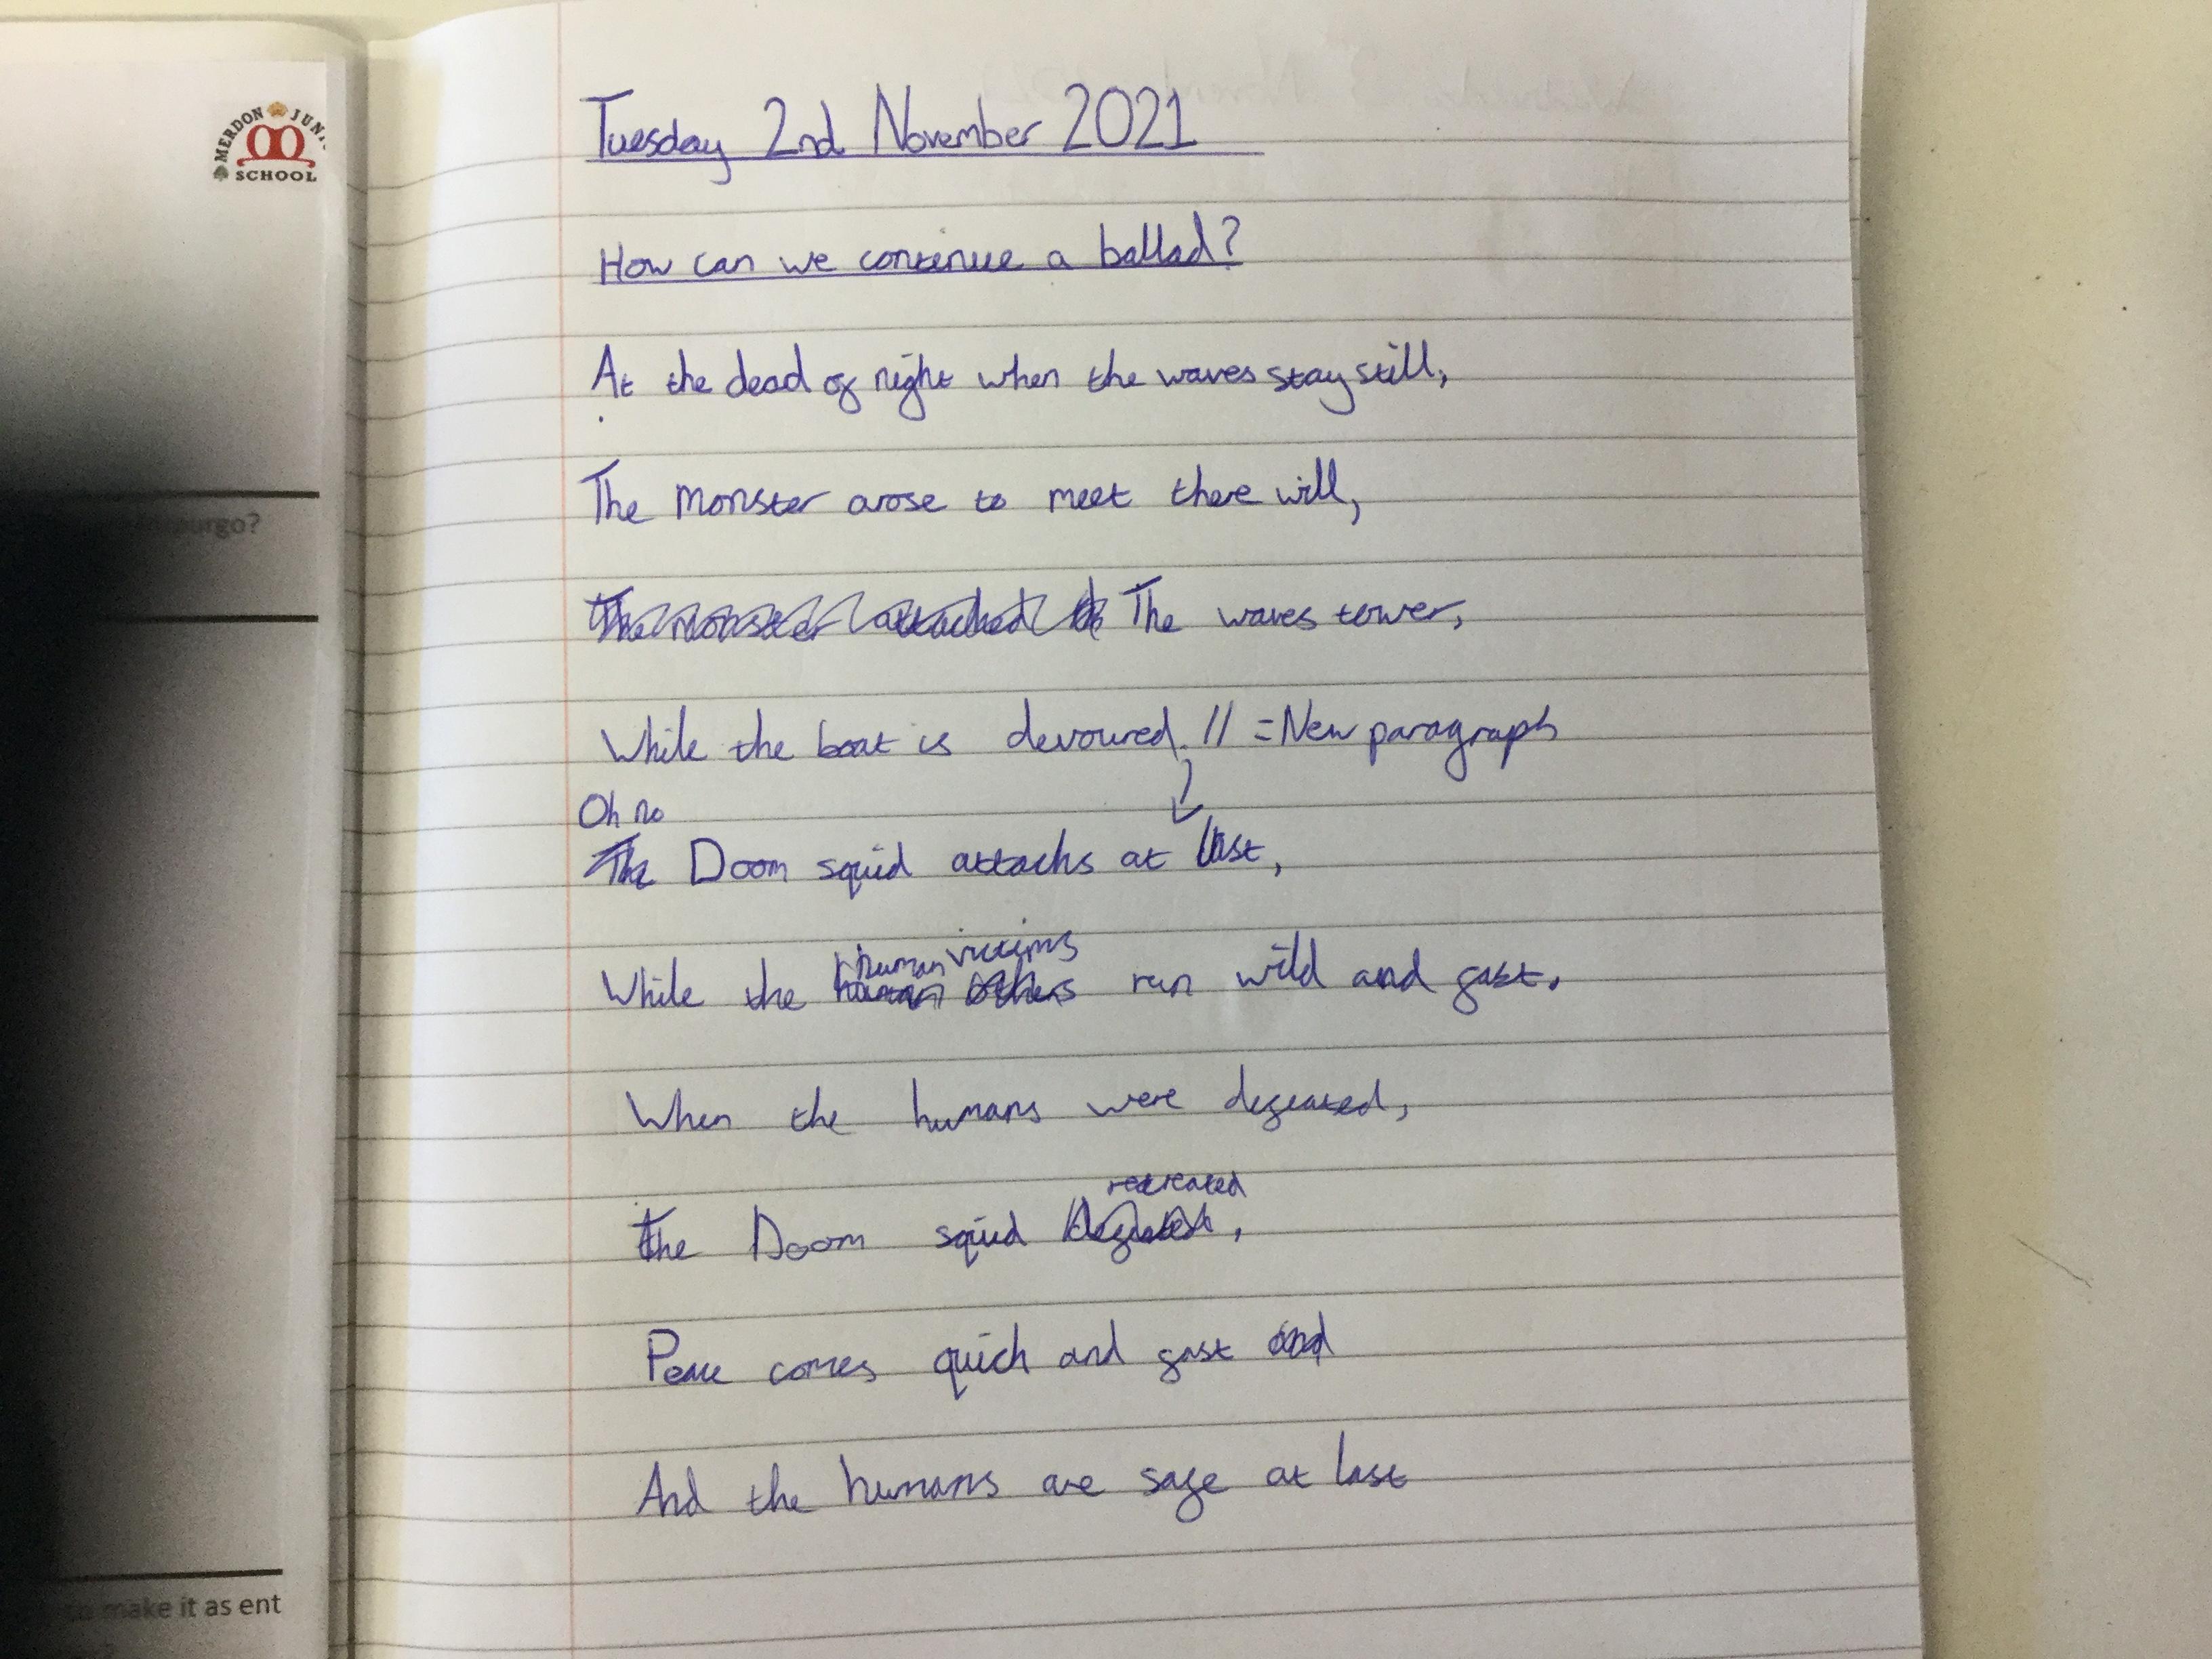 MERDON JUN
SCHOOL
purgo?
make it as ent
Tuesday 2nd November 2021
How can we contenue a ballad?
At the dead of night when the waves stay still,
The monster arose to meet there will,
The monster attacked The waves tower,
While the boat is devoured. // = New paragraph
Oh no
The Doom squid attacks at last,
human victims
While the human others run wild and fast.
When the humans were defeated,
retreated
the Doom squid defeated,
Peace comes quick and fast and
And the humans are safe at last